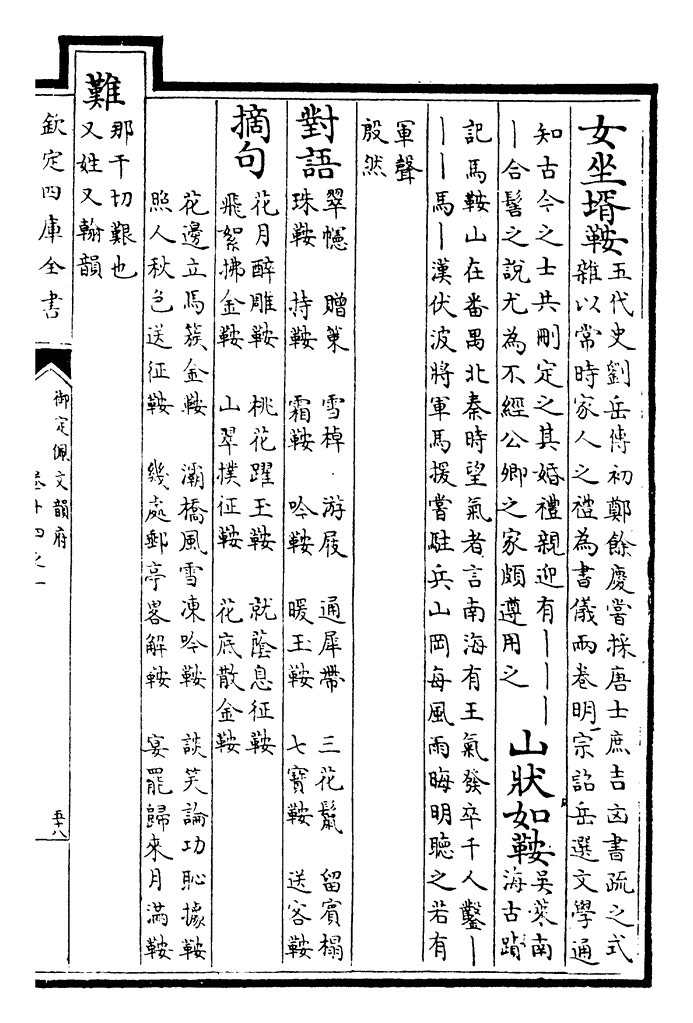 女坐壻鞍五代史劉岳傳初鄭餘慶嘗採唐士庶吉凶書疏之式
雜以當時家人之禮為書儀兩卷明宗詔岳選文學通
知古今之士共刪定之其婚禮親迎有丨丨丨
丨合髻之說尤為不經公卿之家頗遵用之
山狀如鞍吳萊南
海古蹟
記馬鞍山在番禺北秦時望氣者言南海有王氣發卒千人鑿丨
丨丨馬丨漢伏波將軍馬援嘗駐兵山岡每風雨晦明聽之若有
軍聲
殷然
對語
翠幰 贈策 雪棹 游屐 通犀帶 三花鬣 留賓榻
珠鞍 持鞍 霜鞍 吟鞍 暖玉鞍 七寶鞍 送客鞍
摘句
花月醉雕鞍 桃花躍玉鞍 就蔭息征鞍
飛絮拂金鞍 山翠撲征鞍 花底散金鞍
花邊立馬簇金鞍 灞橋風雪凍吟鞍 談笑論功恥據鞍
照人秋色送征鞍 幾處郵亭畧解鞍 宴罷歸來月滿鞍
難
那干切艱也
又姓又翰韻
欽定四庫全書
御定佩文韻府
卷十四之一
五十八